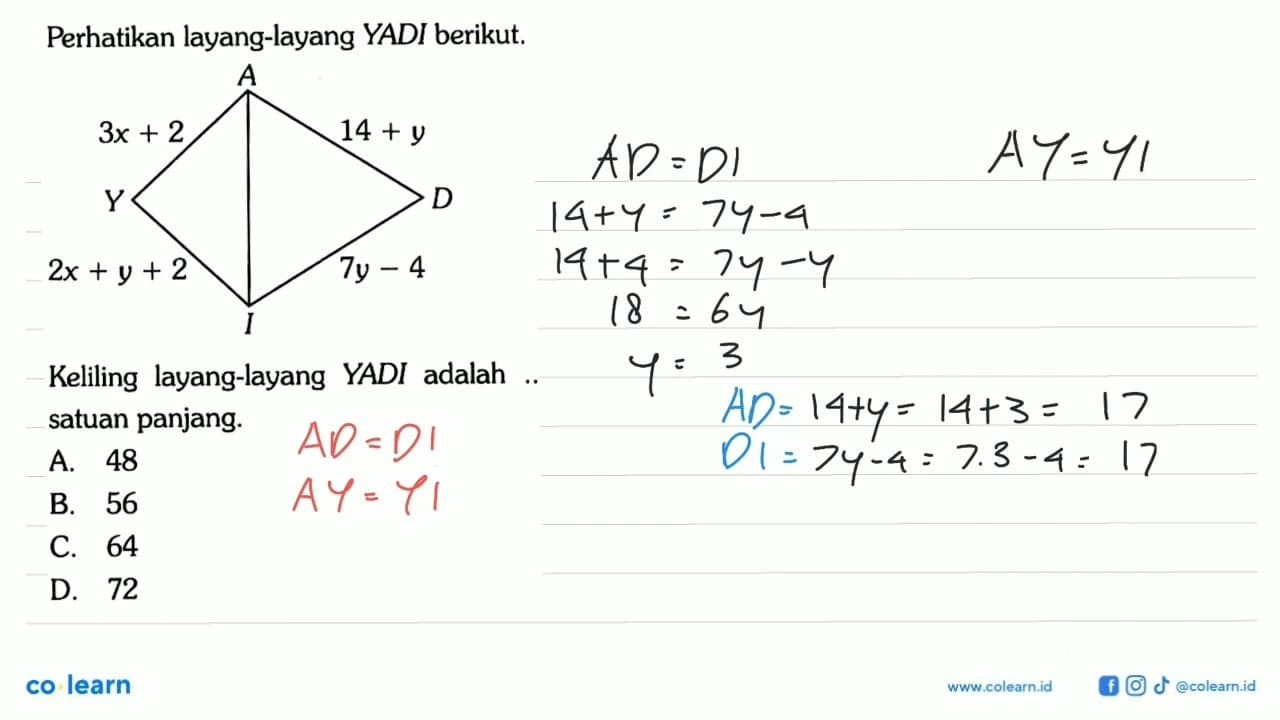 Perhatikan layang-layang YADI berikut.
A
3x + 2
14 + y
Y
D
2x + y + 2
7y - 4
I
Keliling layang-layang YADI adalah ..
satuan panjang.
A. 48
B. 56
C. 64
D. 72
AD = DI
AY = YI
AD = DI
14 + y = 7y - 4
14 + 4 = 7y - y
18 = 6y
y = 3
AD = 14 + y = 14 + 3 = 17
DI = 7y - 4 = 7.3 - 4 = 17
AY = YI
co learn
www.colearn.id
@colearn.id